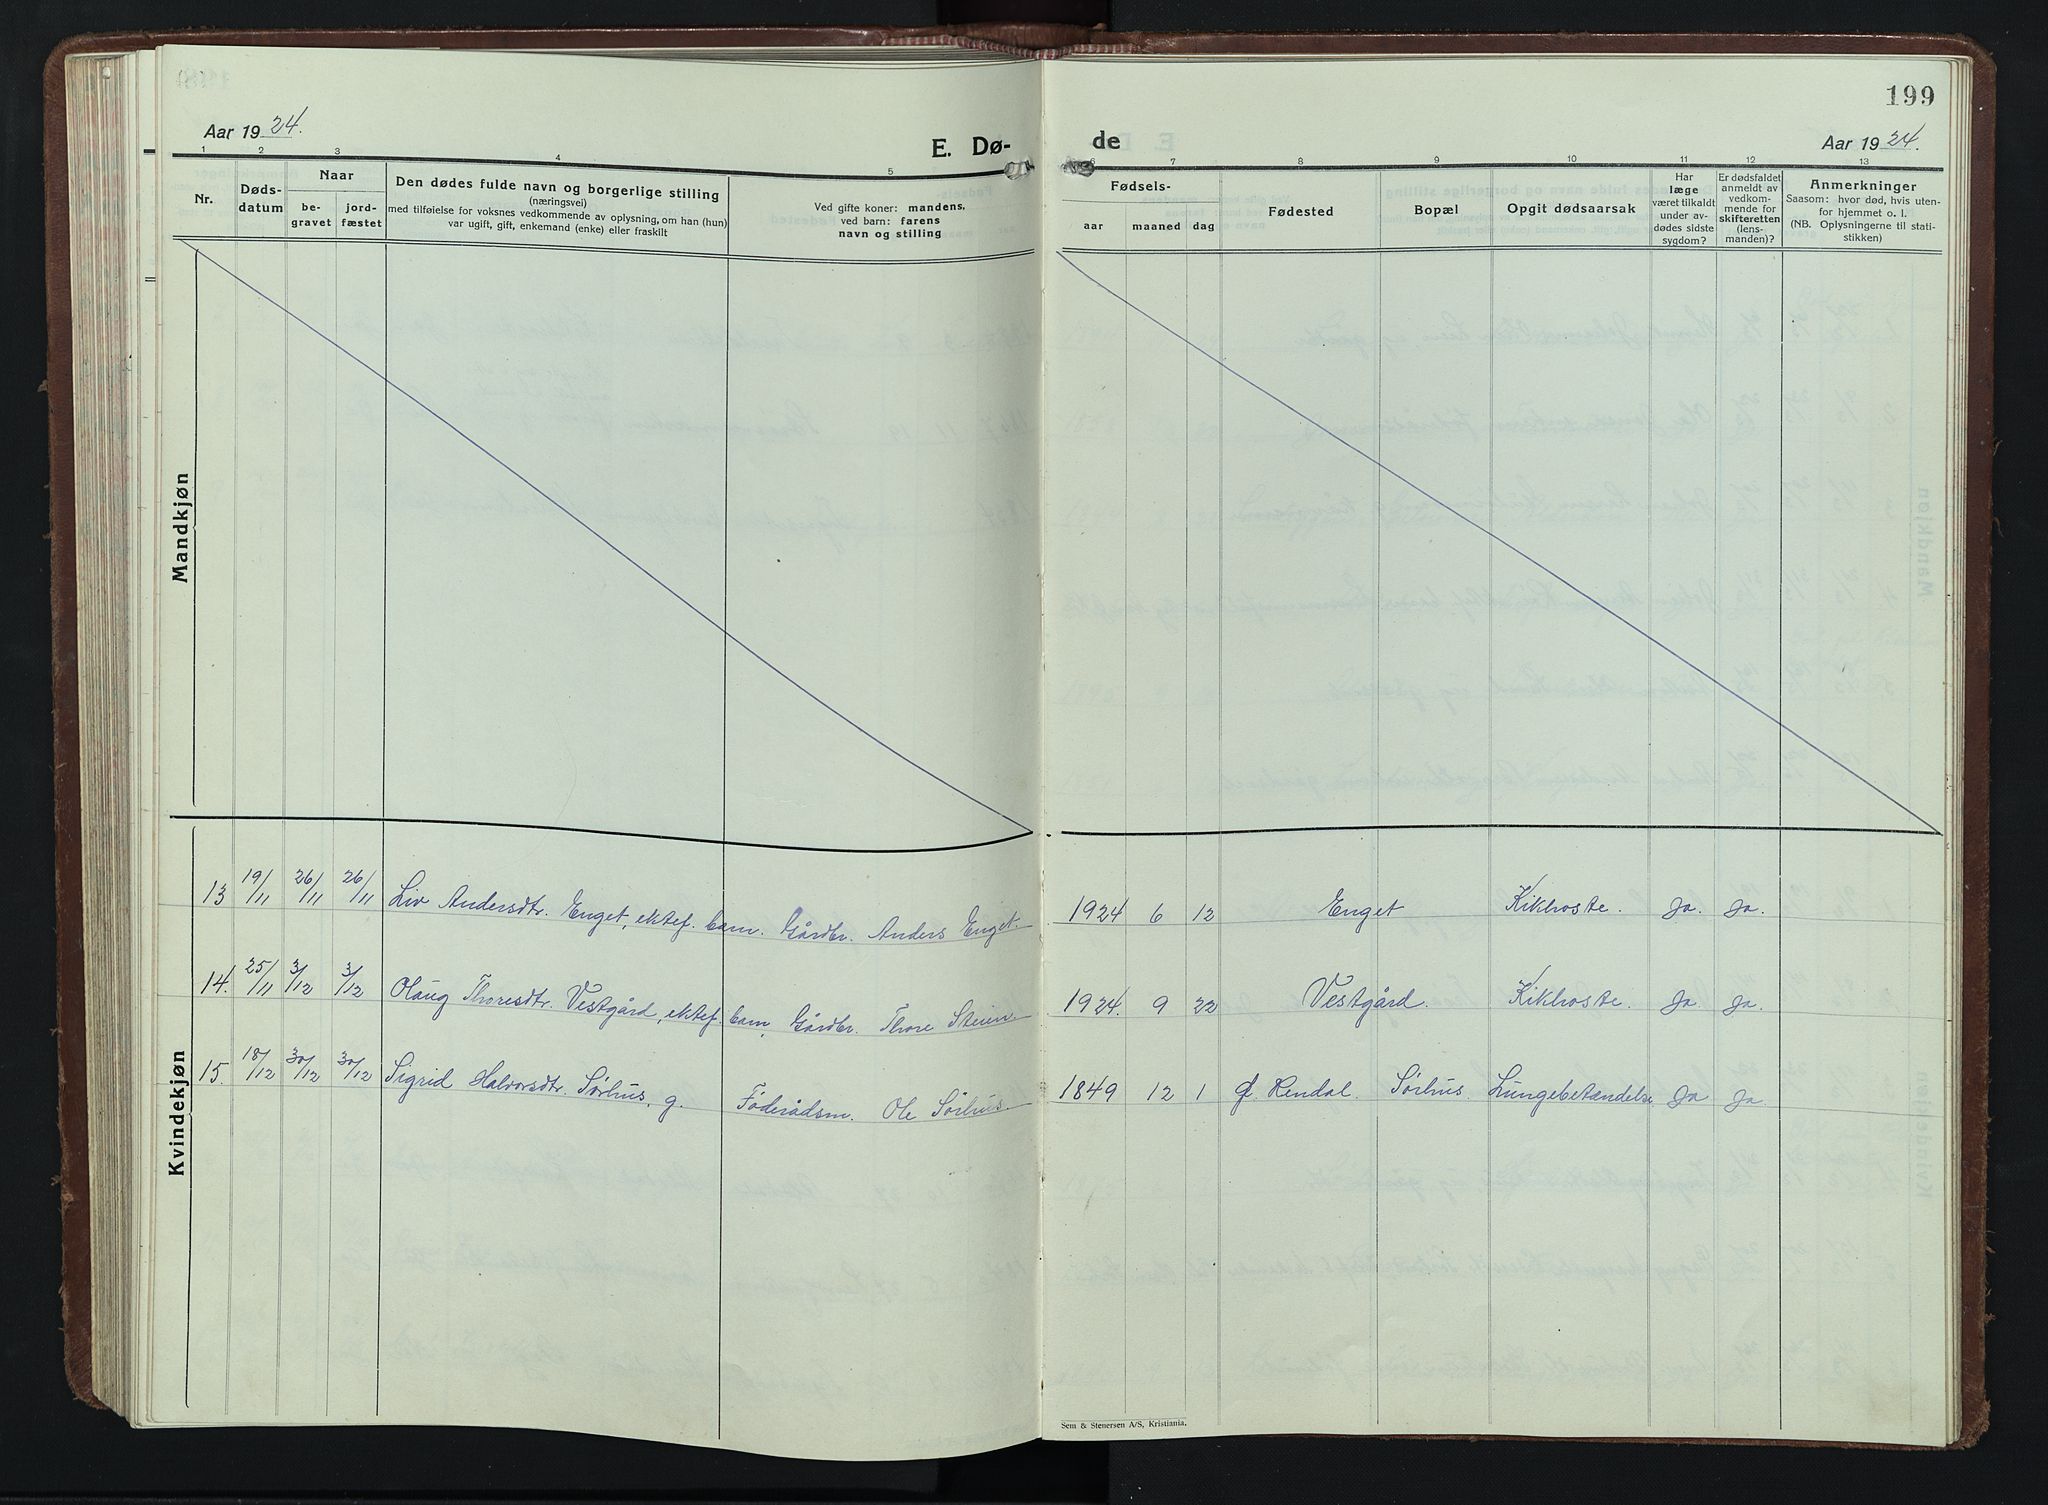 199
Aar 1924.
E. Dø-
de
Aar 1924.
1 2 3 4 5 6 7 8 9 10 11 12 13
Nr.
Døds-
datum
Naar
be-
gravet
jord-
fæstet
Den dødes fulde navn og borgerlige stilling
(næringsvei)
med tilføielse for voksnes vedkommende av oplysning, om han (hun)
var ugift, gift, enkemand (enke) eller fraskilt
Ved gifte koner: mandens,
ved barn: farens
navn og stilling
Fødsels-
aar
maaned
dag
Fødested
Bopæl
Opgit dødsaarsak
Har
læge
været tilkaldt
under av-
dødes sidste
sygdom?
Er dødsfaldet
anmeldt av
vedkom-
mende for
skifteretten
(lens-
manden)?
Anmerkninger
Saasom: hvor død, hvis uten-
for hjemmet o. l.
(NB. Oplysningerne til stati-
stikken)
Mandkjøn
Kvindekjøn
13 19/11 26/11 26/11 Liv Andersdtr. Enget, ektef. barn. Gårdbr. Anders Enget. 1924 6 12 Enget Kikhoste. Ja. Ja.
14. 25/11 3/12 3/12 Olaug Thoresdtr. Vestgård, ektef. barn, Gårdbr. Thore Steien. 1924. 9 22 Vestgård. Kikhoste. Ja Ja.
15. 18/12 30/12 30/12 Sigrid Halvorsdtr. Sørhus, g. Føderådsm. Ole Sørhus. 1849 12 1 Rendal. Sørhus. Lungebetændelse Ja Ja.
Sem & Stenersen A/S, Kristiania.